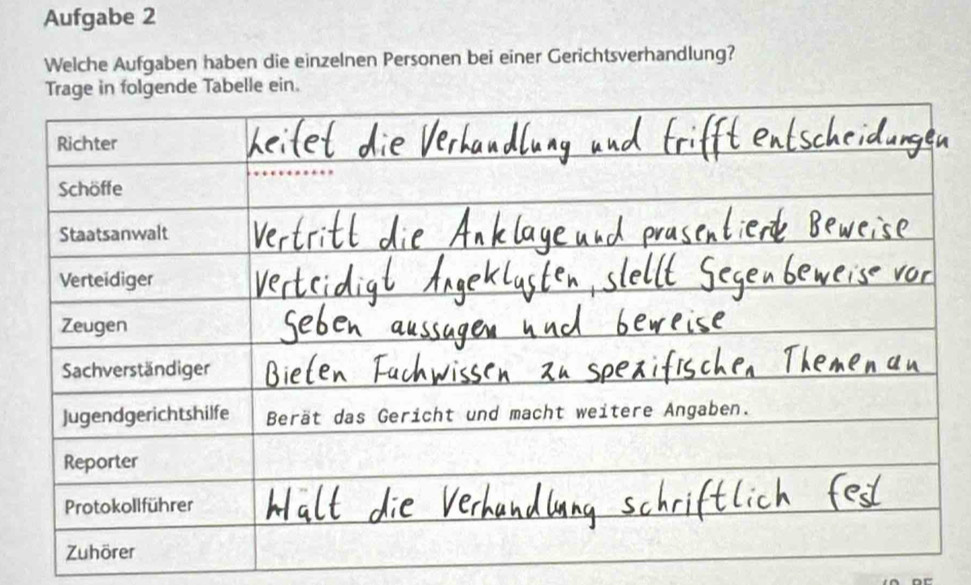 Aufgabe 2
Welche Aufgaben haben die einzelnen Personen bei einer Gerichtsverhandlung?
Trage in folgende Tabelle ein.
Richter Leitet die Verhandlung und trifft entscheidungen
Schöffe
Staatsanwalt Vertritt die Anklage und prasentierte Beweise
Verteidiger Verteidigt Angeklagten, stellt Gegenbeweise vor
Zeugen Geben aussagen und beweise
Sachverständiger Bieten Fachwissen zu spezifischen Themen an
Jugendgerichtshilfe Berät das Gericht und macht weitere Angaben.
Reporter
Protokollführer Hält die Verhandlung schriftlich fest
Zuhörer